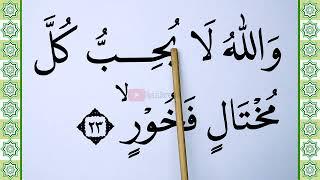 وَاللّٰهُ لَا يُحِبُّ كُلَّ
مُخْتَالٍ فَخُوْرٍ ۙ ﴿٢٣﴾